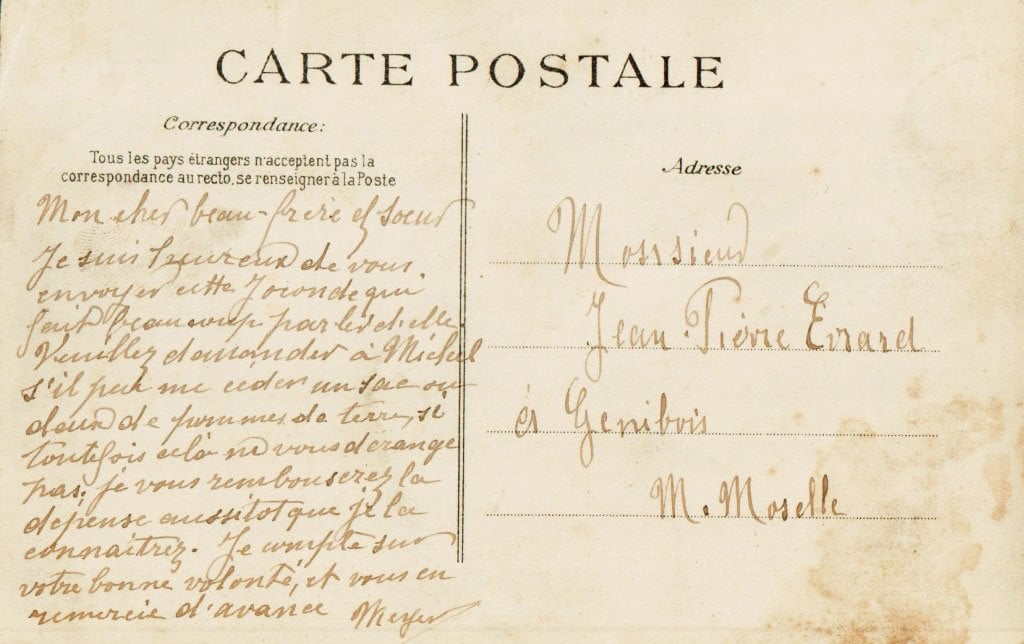 CARTE POSTALE
Correspondance:
Tous les pays étrangers n'acceptent pas la
correspondance au recto, se renseigner à la Poste
Mon cher beau-frère et soeur
Je suis heureux de vous
envoyer cette Joconde qui
fait beaucoup parler d'elle.
Veuillez demander à Michel
s'il peut me céder un sac ou
deux de pommes de terre, si
toutefois cela ne vous dérange
pas. je vous rembourserez la
dépense aussitot que je la
connaitrez. Je compte sur
votre bonne volonté, et vous en
remercie d'avance Meyer
Adresse
Monsieur
Jean-Pierre Evrard
à Genibois
M. Moselle